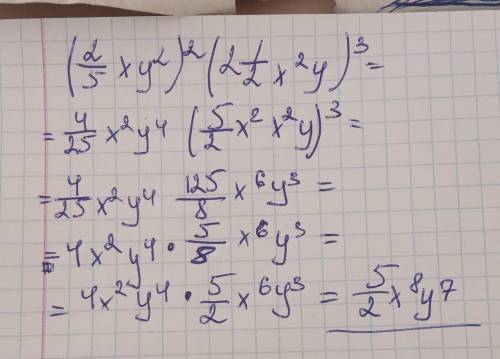 (2/5 xy²)² (2 1/2 x²y)³ =
= 4/25 x²y⁴ (5/2 x² x²y)³ =
= 4/25 x²y⁴ 125/8 x⁶y³ =
= 4x²y⁴ · 5/8 x⁶y³ =
= 4x²y⁴ · 5/2 x⁶y³ = 5/2 x⁸y⁷